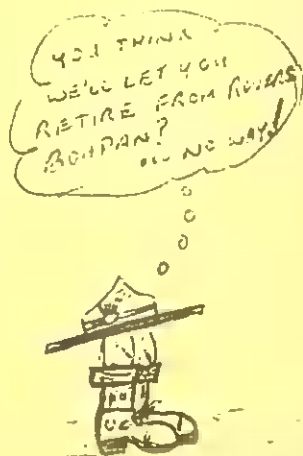 YOU THINK
WE'LL LET YOU
RETIRE FROM ROVERS
BOHPAN?
... NO WAY!